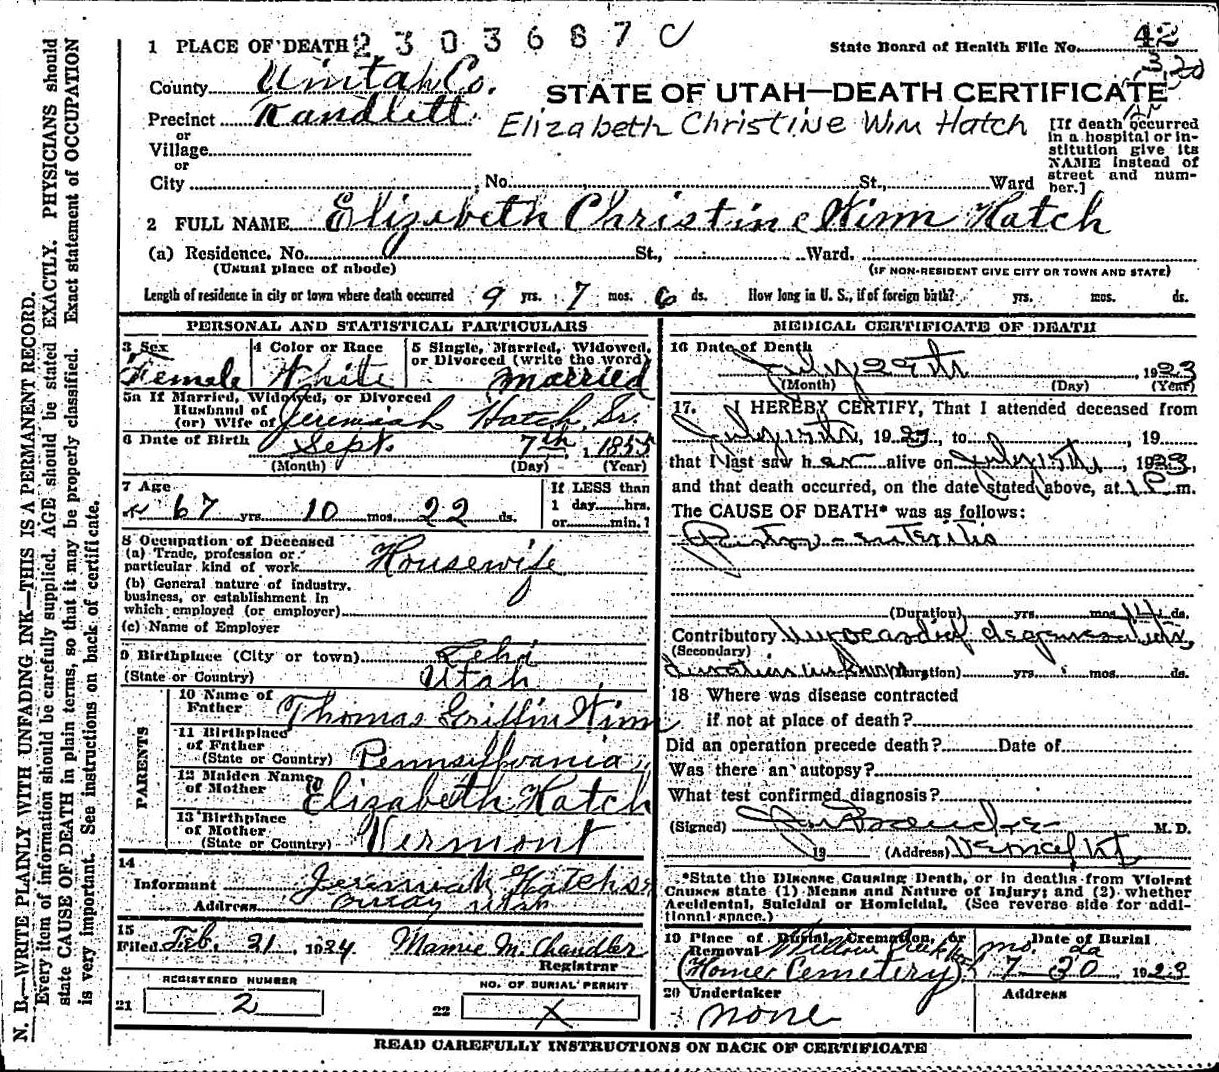 1 PLACE OF DEATH 2 3 0 3 6 8 7 C
State Board of Health File No. 42
County Uintah Co.
STATE OF UTAH—DEATH CERTIFICATE
Precinct Randlett
Elizabeth Christine Winn Hatch
[If death occurred in a hospital or institution give its NAME instead of street and number.]
or
Village
or
City , No. St., Ward
2 FULL NAME Elizabeth Christine Winn Hatch
(a) Residence. No. St., Ward.
(Usual place of abode) (IF NON-RESIDENT GIVE CITY OR TOWN AND STATE)
Length of residence in city or town where death occurred 9 yrs. 7 mos. 6 ds. How long in U. S., if of foreign birth? yrs. mos. ds.
PERSONAL AND STATISTICAL PARTICULARS
3 Sex Female
4 Color or Race White
5 Single, Married, Widowed, or Divorced (write the word) Married
5a If Married, Widowed, or Divorced
Husband of
(or) Wife of Jeremiah Hatch, Sr.
6 Date of Birth Sept. 7th, 1855
(Month) (Day) (Year)
7 Age 67 yrs. 10 mos. 22 ds.
If LESS than
1 day hrs.
or min.?
8 Occupation of Deceased
(a) Trade, profession or particular kind of work Housewife
(b) General nature of industry, business, or establishment in which employed (or employer)
(c) Name of Employer
9 Birthplace (City or town) Lehi
(State or Country) Utah
PARENTS
10 Name of Father Thomas Griffin Winn
11 Birthplace of Father (State or Country) Pennsylvania
12 Maiden Name of Mother Elizabeth Hatch
13 Birthplace of Mother (State or Country) Vermont
14
Informant Jeremiah Hatch Sr
Address Ouray Utah
15
Filed Feb. 21, 1924 Mamie M. Chandler
Registrar
REGISTERED NUMBER
21 2
NO. OF BURIAL PERMIT
22 X
MEDICAL CERTIFICATE OF DEATH
16 Date of Death
July 29th 1923
(Month) (Day) (Year)
17. I HEREBY CERTIFY, That I attended deceased from
July 15th, 1923, to , 19
that I last saw her alive on July 15th, 1923,
and that death occurred, on the date stated above, at 1 P m.
The CAUSE OF DEATH* was as follows:
Gastro-enteritis
(Duration) yrs. mos. 14 ds.
Contributory Myocardial degeneration,
(Secondary)
duration unknown (Duration) yrs. mos. ds.
18 Where was disease contracted
if not at place of death?
Did an operation precede death? Date of
Was there an autopsy?
What test confirmed diagnosis?
(Signed) M. D.
19 (Address) Vernal Ut
*State the Disease Causing Death, or in deaths from Violent
Causes state (1) Means and Nature of Injury; and (2) whether
Accidental, Suicidal or Homicidal. (See reverse side for addi-
tional space.)
19 Place of Burial, Cremation, or Removal
(Homer Cemetery)
Date of Burial
mo. da
7 30 1923
20 Undertaker
none
Address
READ CAREFULLY INSTRUCTIONS ON BACK OF CERTIFICATE
N. B.—WRITE PLAINLY WITH UNFADING INK—THIS IS A PERMANENT RECORD.
Every item of information should be carefully supplied. AGE should be stated EXACTLY. PHYSICIANS should
state CAUSE OF DEATH in plain terms, so that it may be properly classified. Exact statement of OCCUPATION
is very important. See instructions on back of certificate.